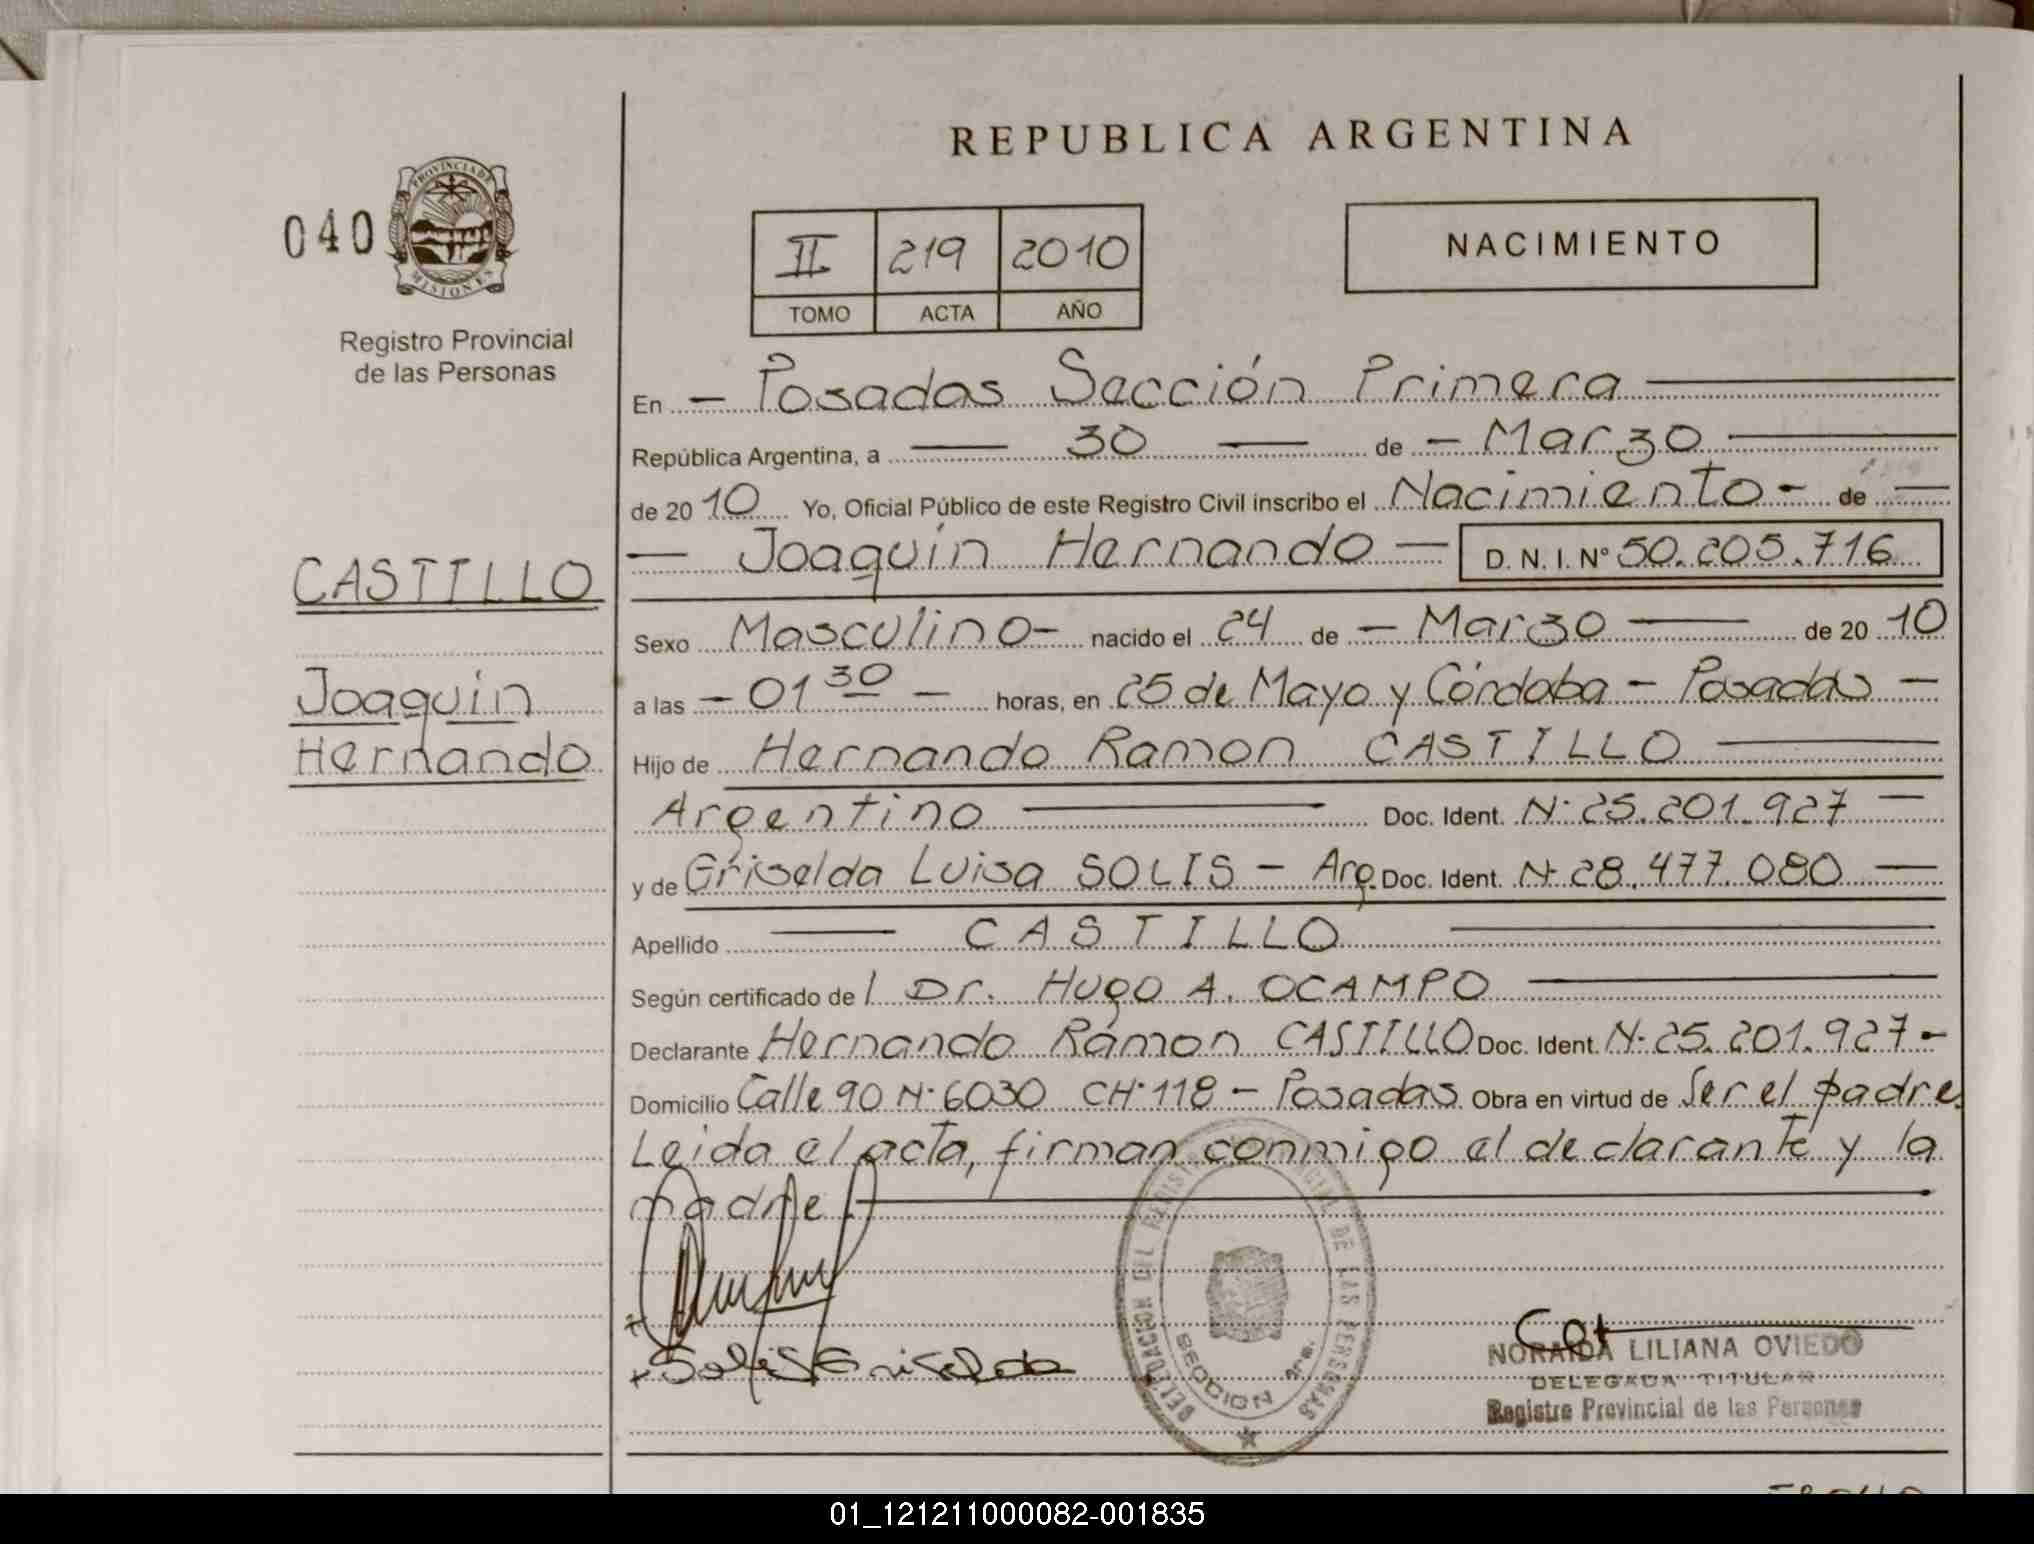 REPUBLICA ARGENTINA
040
PROVINCIA DE
MISIONES
Registro Provincial
de las Personas
II 219 2010
TOMO ACTA AÑO
NACIMIENTO
En – Posadas Sección Primera
República Argentina, a 30 de – Marzo
de 2010 Yo, Oficial Público de este Registro Civil inscribo el Nacimiento - de
— Joaquín Hernando — D. N. I. Nº 50.205.716
CASTILLO
Joaquín
Hernando
Sexo Masculino- nacido el 24 de – Marzo de 2010
a las – 01 30 – horas, en 25 de Mayo y Córdoba – Posadas –
Hijo de Hernando Ramon CASTILLO
Argentino Doc. Ident. Nº 25.201.927 –
y de Griselda Luisa SOLIS – Arg. Doc. Ident. Nº 28.477.080 –
Apellido CASTILLO
Según certificado de l Dr. Hugo A. OCAMPO
Declarante Hernando Ramon CASTILLO Doc. Ident. Nº 25.201.927 -
Domicilio Calle 90 Nº 6030 CHº 118 – Posadas Obra en virtud de Ser el padre
Leida el acta, firman conmigo el declarante y la
madre.
DELEGACION DEL REGISTRO PROVINCIAL DE LAS PERSONAS
SECCION 1ra.
+ Solis Griselda
NORAIDA LILIANA OVIEDO
DELEGADA TITULAR
Registro Provincial de las Personas
01_121211000082-001835